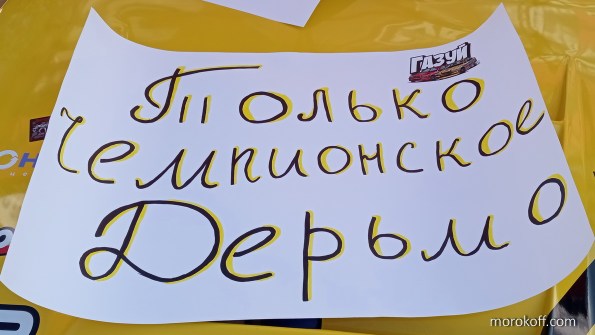 ГАЗУЙ
Только
Чемпионское
Дерьмо
morokoff.com